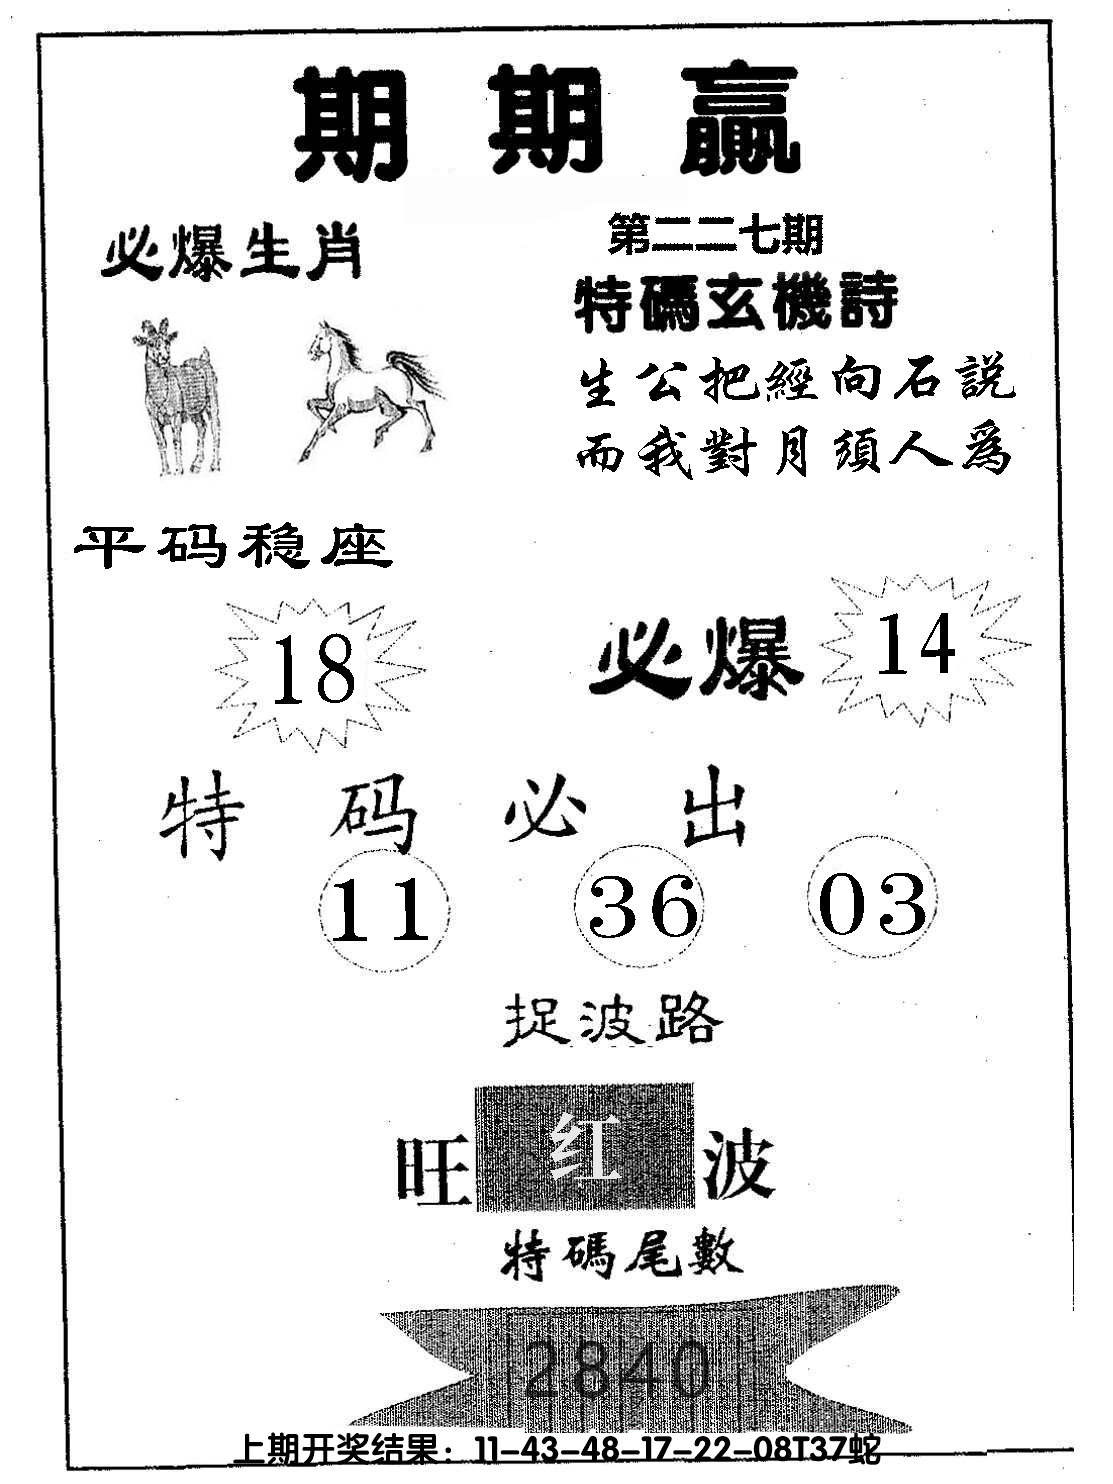 期期赢
必爆生肖
第二二七期
特碼玄機詩
生公把經向石説
而我對月須人爲
平码稳座
18
必爆
14
特码必出
11 36 03
捉波路
旺红波
特碼尾數
2840
上期开奖结果：11-43-48-17-22-08T37蛇